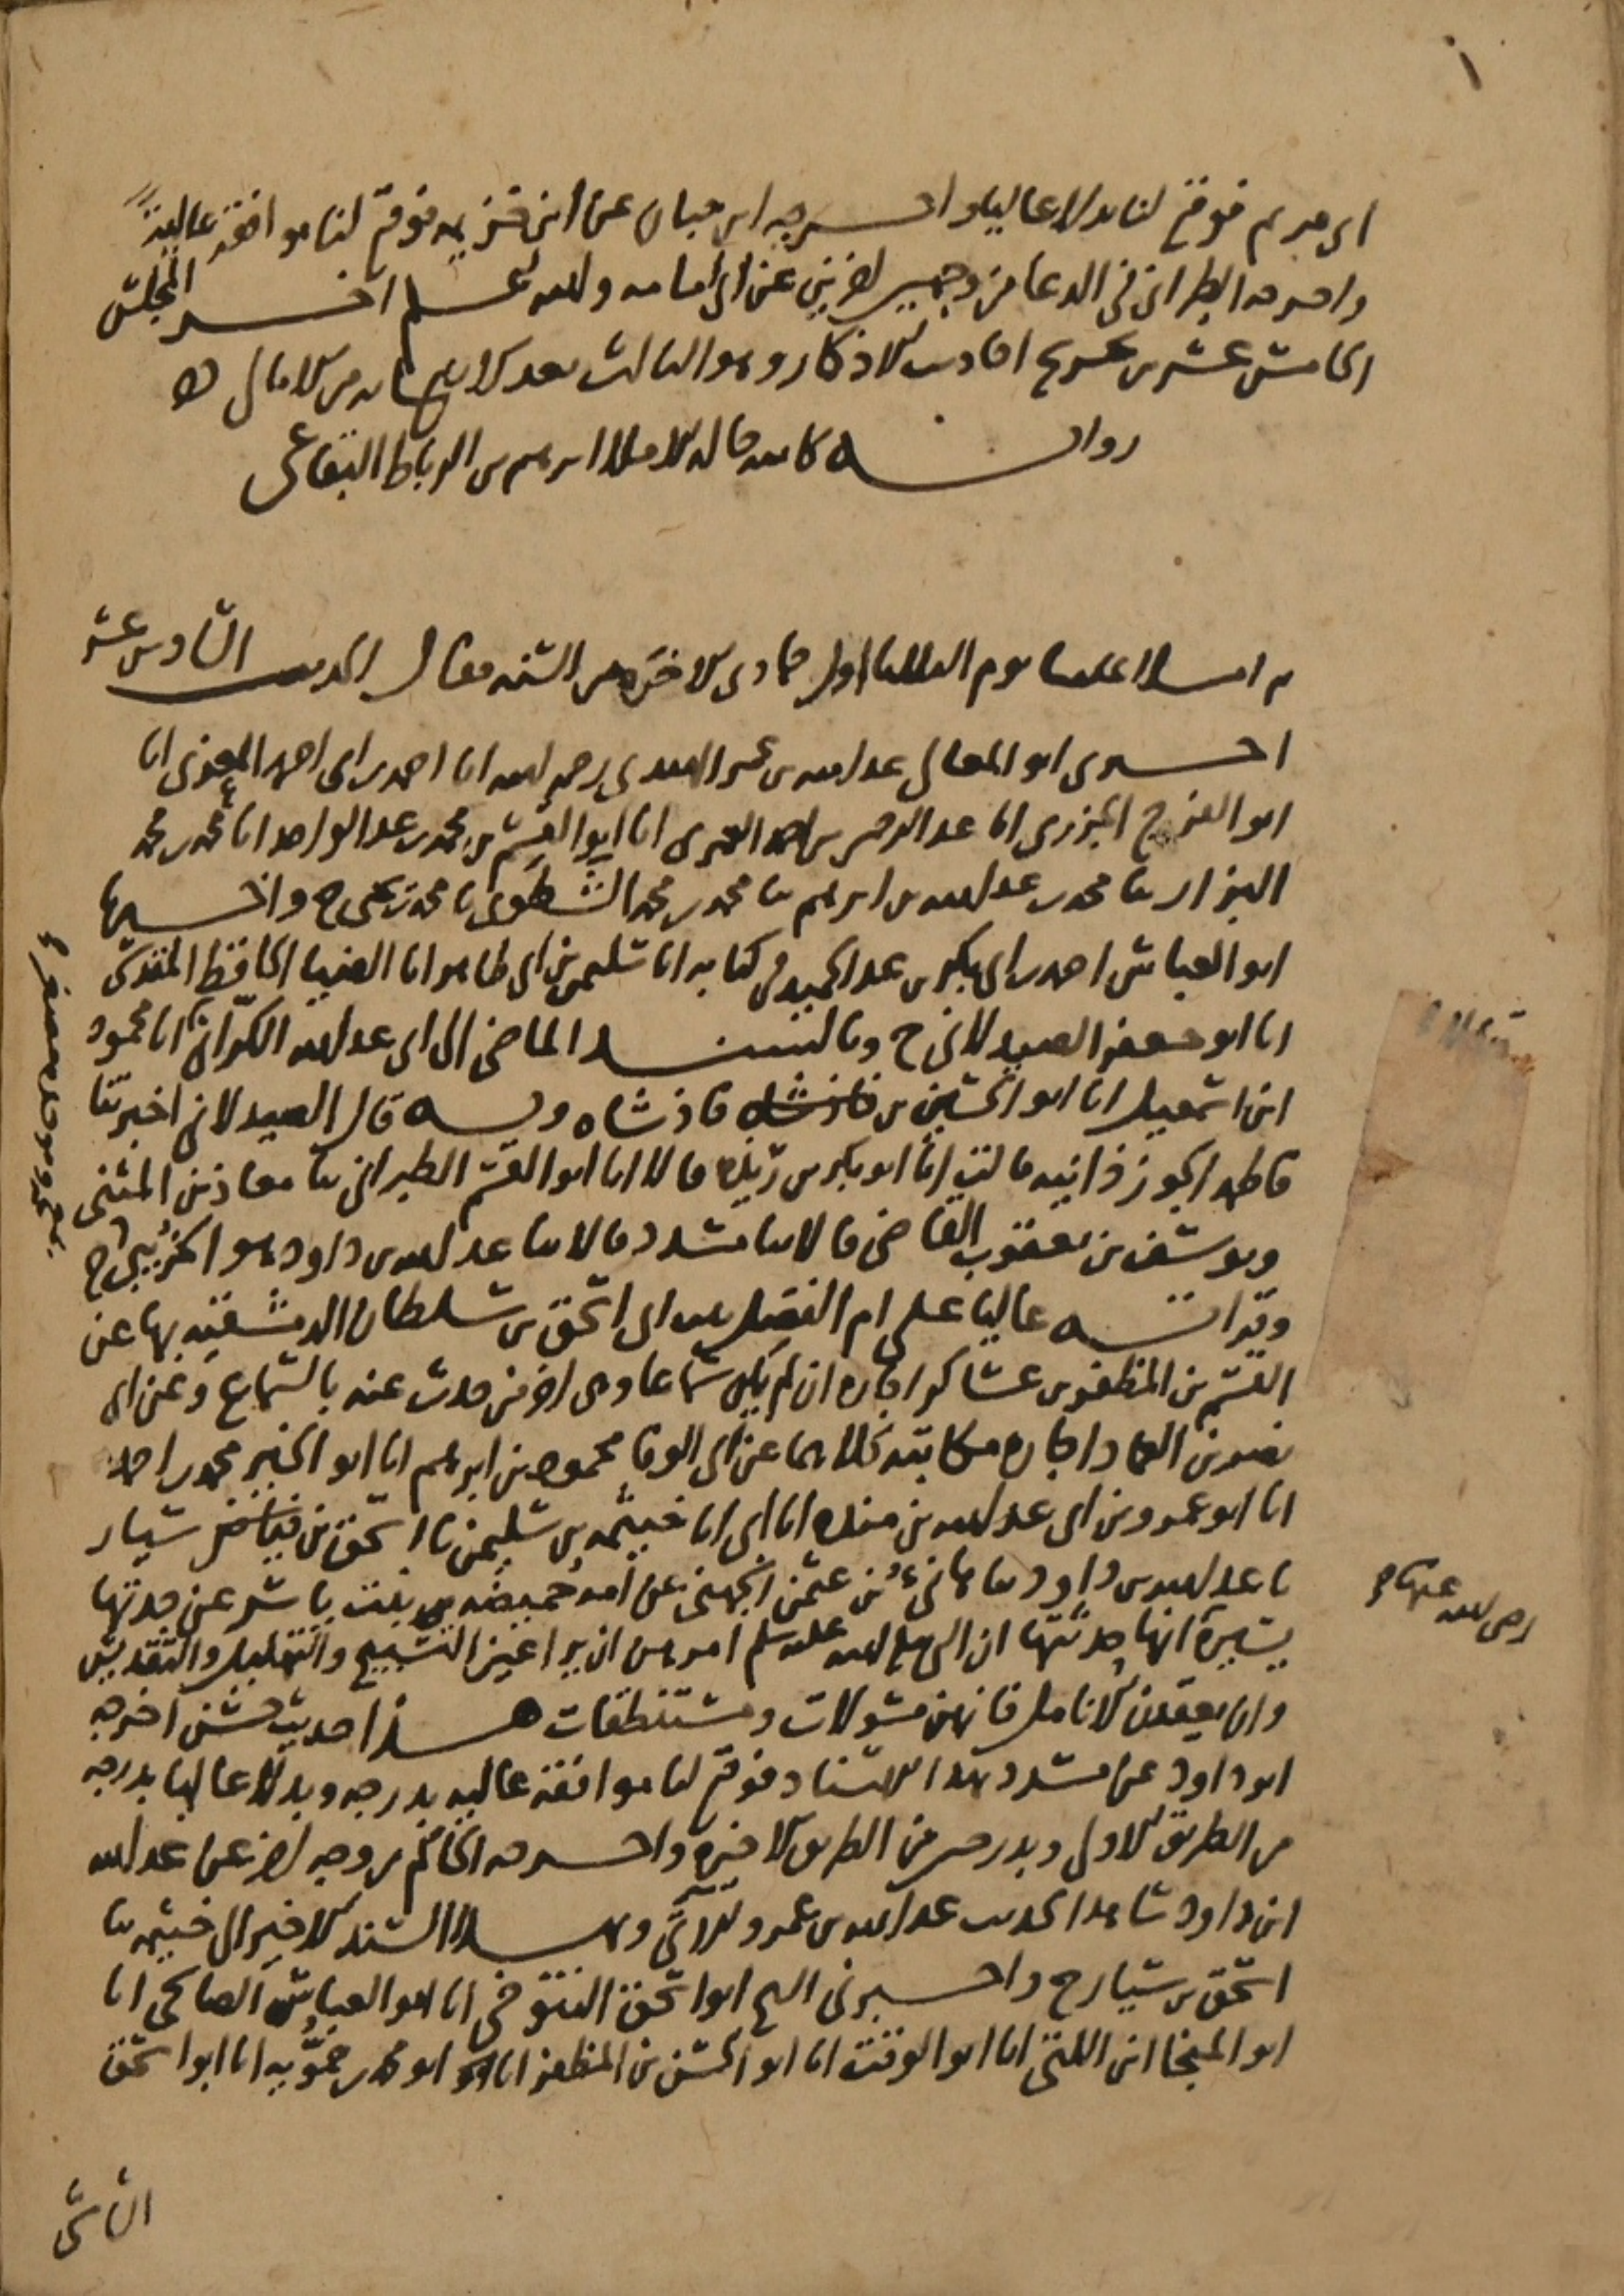 ١
ابن مريم فوقع لنا بدلا عاليا واخرجه ابن حبان عن ابن خزيمه فوقع لنا موافقة عالية
واخرجه الطبراني في الدعا من وجهين اخرين عن ابي امامه والله اعلم اخر المجلس
الخامس عشر من تخريج احاديث الاذكار وهو الثالث بعد الاربع مايه من الامالي
روايه كاتبه حاله الاملا ابرهيم بن الرباط البقاعي
ثم املا علينا يوم الثلثا اول جمادى الاخره من السنه فقال الحديث السادس عشر
اخبرني ابو المعالي عبد الله بن عمر الهندي رحمه الله انا احمد بن ابي احمد المعزي انا
ابو الفرج الجزري انا عبد الرحمن بن احمد العمري انا ابو القسم بن محمد بن عبد الواحد انا محمد بن محمد
البزار ثنا محمد بن عبد الله بن ابرهيم ثنا محمد بن محمد الشطوي ثنا محمد بن يحيى ح واخبرنا
ابو العباس احمد بن ابي بكر بن عبد الحميد في كتابه انا سليمن بن ابي طاهر انا الضيا الحافظ المقدسي
انا ابو جعفر الصيدلاني ح وبالسند الماضي الى ابي عبد الله الكراني انا محمود
ابن اسمعيل انا ابو الحسين بن فاذشاه وبه قال الصيدلاني اخبرتنا
فاطمه الجوزذانيه قالت انا ابو بكر بن ريذه قالا انا ابو القسم الطبراني ثنا معاذ بن المثنى
ويوسف بن يعقوب القاضي قالا ثنا مسدد قالا ثنا عبد الله بن داود هو الخريبي ح
وقراته عاليا على ام الفضل بنت ابي اسحق بن سلطان الدمشقيه بها عن
القسم بن المظفر بن عساكر اجازه ان لم يكن سماعا وهي اخر من حدث عنه بالسماع وعن ابي
نصر بن العماد اجازه مكاتبه كلاهما عن ابي الوفا محمود بن ابرهيم انا ابو الخير محمد بن احمد
انا ابو عمرو بن ابي عبد الله بن منده انا ابي انا خيثمه بن سليمن ثنا اسحق بن سيار
ثنا عبد الله بن داود ثنا هانئ بن عثمن الجهني عن امه حميضه بنت ياسر عن جدتها
يسيرة انها حدثتها ان النبي صلى الله عليه وسلم امرهن ان يراعين التسبيح والتهليل والتقديس
وان يعقدن الانامل فانهن مسولات ومستنطقات هذا حديث حسن اخرجه
ابو داود عن مسدد بهذا الاسناد فوقع لنا موافقة عاليه بدرجه وبدلا عاليا بدرجه
من الطريق الاولى وبدرجتين من الطريق الاخيره واخرجه الحاكم من وجه اخر عن عبد الله
ابن داود شاهدا لحديث عبد الله بن عمرو الاتي وبهذا السند الاخير الى خيثمه ثنا
اسحق بن سيار ح واخبرني الشيخ ابو اسحق التنوخي انا ابو العباس الصالحي انا
ابو المنجا ابن اللتي انا ابو الوقت انا ابو الحسن بن المظفر انا ابو محمد بن حمويه انا ابو اسحق
رضي الله عنها
الشاشي